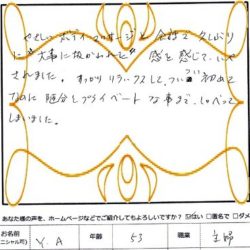 やさしいボディマッサージと会話で久しぶり
に"大事に扱がわれた"感を感じて、いや
されました。すっかりリラックスして、つい初めて
なのに随分とプライベートな事まで、しゃべって
しまいました。
あなた様の声を、ホームページなどでご紹介してもよろしいですか? はい □匿名で □ダメ
お名前 (イニシャル可) Y.A 年齢 53 職業 主婦